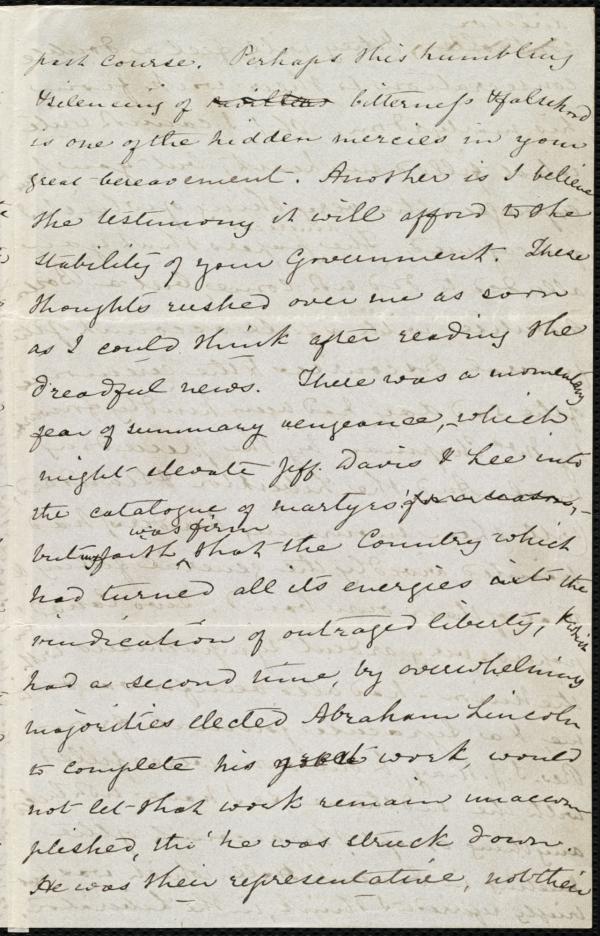 past course. Perhaps this humbling
& silencing of bitterness & falsehood
is one of the hidden mercies in your
great bereavement. Another is I believe
the testimony it will afford to the
stability of your Government. These
thoughts rushed over me as soon
as I could think after reading the
dreadful news. There was a momentary
fear of summary vengeance, which
might elevate Jeff. Davis & Lee into
the catalogue of martyrs for a season, –
but my faith was firm that the Country which
had turned all its energies into the
vindication of outraged liberty, & which
had a second time, by overwhelming
majorities elected Abraham Lincoln
to complete his great work, would
not let that work remain unaccom
plished, tho' he was struck down.
He was their representative, not their